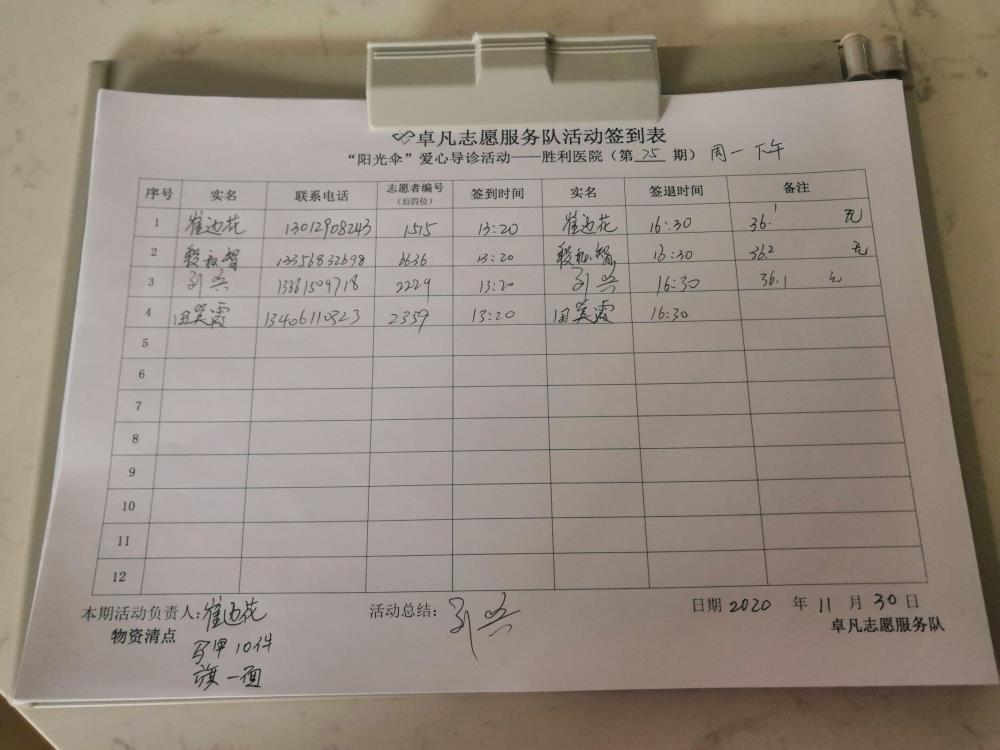 卓凡志愿服务队活动签到表
“阳光伞”爱心导诊活动——胜利医院（第 75 期） 周一 下午
序号 实名 联系电话 志愿者编号（后四位） 签到时间 实名 签退时间 备注
1 崔迎花 13012908243 1515 13:20 崔迎花 16:30 36.1 无
2 13356832698 13:20 16:30 36.2 无
3 2229 13:20 16:30 36.1 无
4 田英霞 13406110323 2359 13:20 田英霞 16:30
5
6
7
8
9
10
11
12
本期活动负责人：崔迎花 活动总结： 日期 2020 年 11 月 30 日
物资清点 卓凡志愿服务队
马甲10件
旗一面